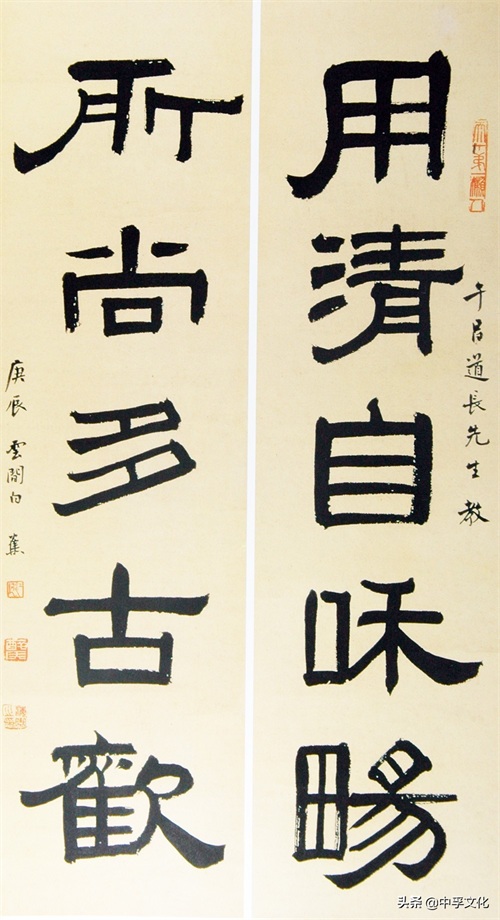 用清自咊畼
午昌道長先生教
所尚多古歡
庚辰雲閒白蕉
头条@中孚文化